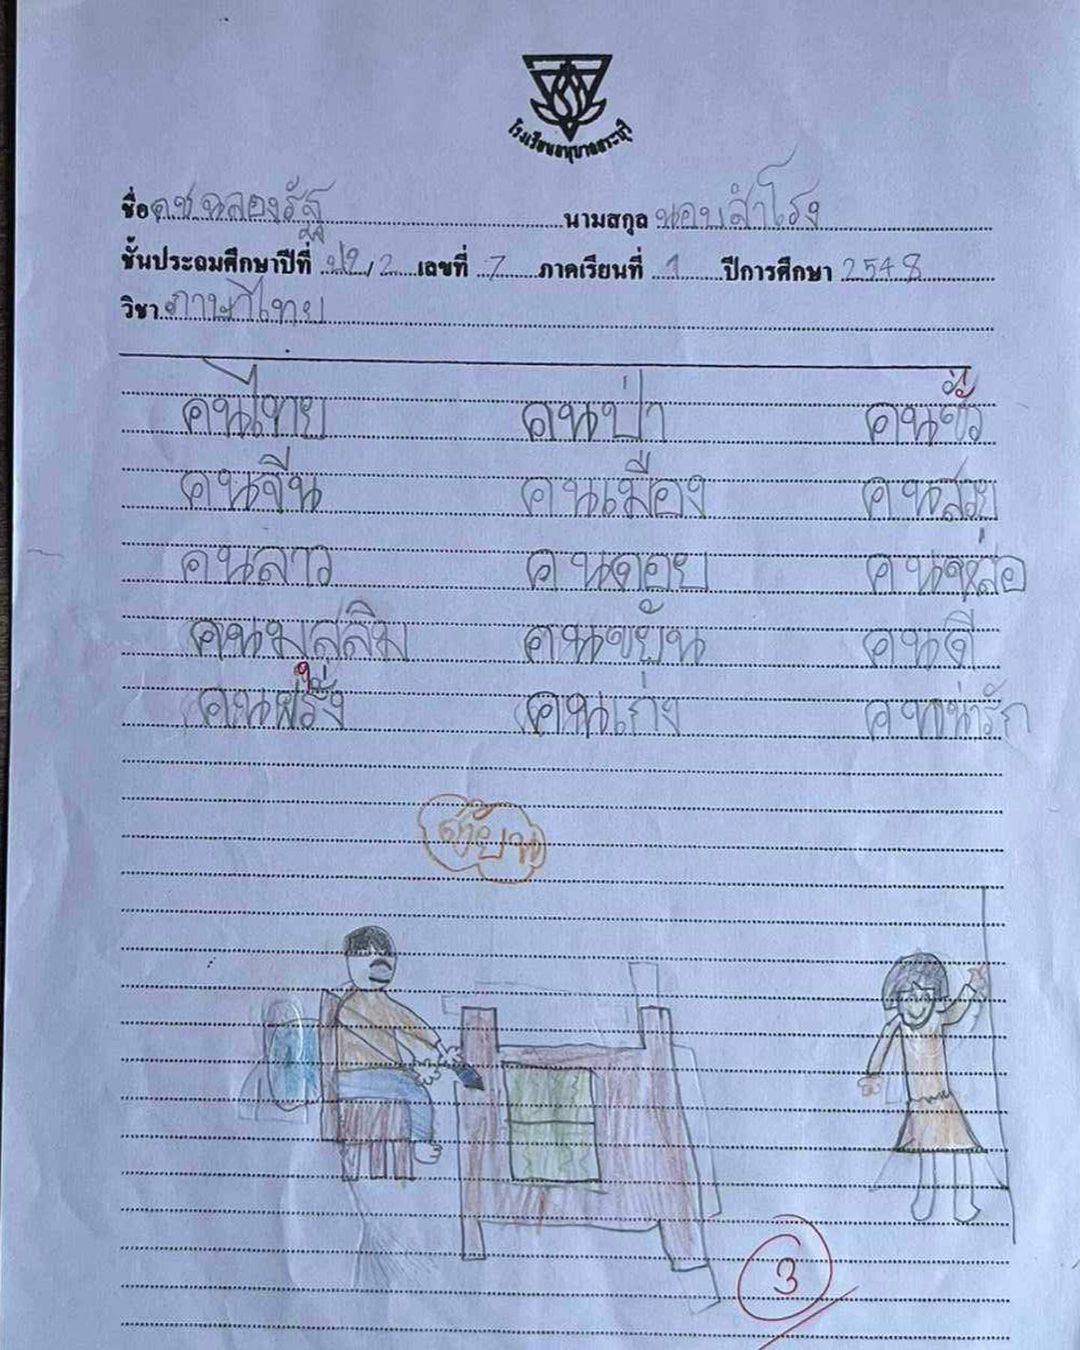 โรงเรียนอนุบาลสระบุรี
ชื่อ ด.ช.ฉลองรัฐ นามสกุล นอบสำโรง
ชั้นประถมศึกษาปีที่ ป2/2 เลขที่ 7 ภาคเรียนที่ 1 ปีการศึกษา 2548
วิชา ภาษาไทย
คนไทย คนป่า คนชั่ว
คนจีน คนเมือง คนสวย
คนลาว คนดอย คนหล่อ
คนมุสลิม คนขยัน คนดี
คนฝรั่ง คนเก่ง คนน่ารัก
3